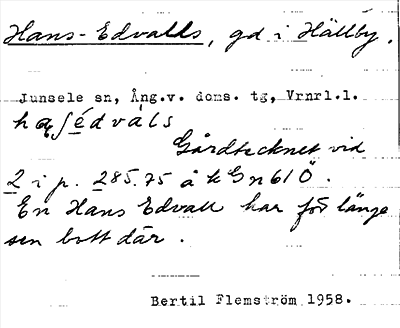 Hans-Edvalls, gd i Hällby.
Junsele sn, Ång.v. doms. tg, Vrnrl.l.
haʃédvàls
Gårdtecknet vid
2 i p. 285.75 å k G n 61 Ö.
En Hans Edvall har för länge
sen bott där.
Bertil Flemström 1958.